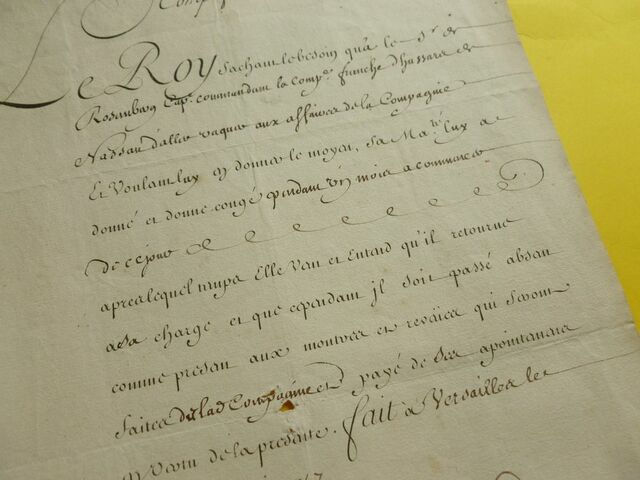 Comp
Le Roy sachant le besoin qu'a le Sr. de
Rosenberg Cap.e commandant la comp.e franche d'hussars de
Nassau d'aller vaquer aux affaires de la Compagnie
Et Voulant luy en donner le moyen, Sa Ma.té luy a
donné et donne congé pendant un mois a commencer
de ce jour
apres lequel temps Elle Veut et Entend qu'il retourne
a sa charge et que cependant il soit passé absent
comme present aux montres et reveües qui seront
faites de lad. Compagnie et payé de ses apointemens
en vertu de la presente. fait a Versailles le